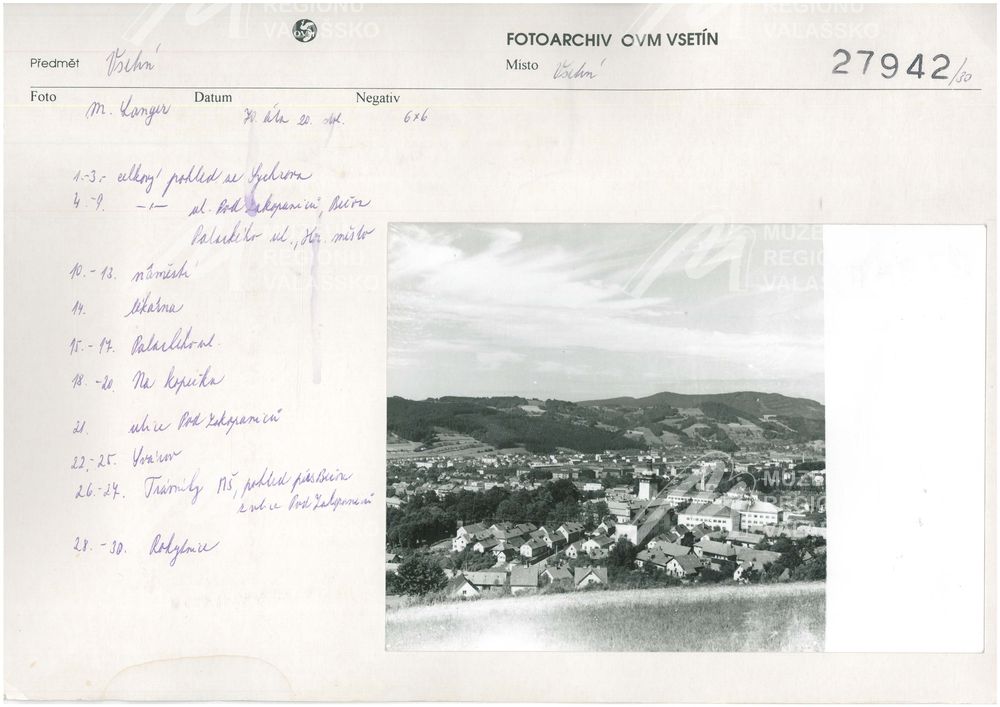 MUZEUM REGIONU VALAŠSKO
OVM
FOTOARCHIV OVM VSETÍN
Předmět Vsetín
Místo Vsetín
27942/30
Foto M. Langer
Datum 70. léta 20. stol.
Negativ 6x6
1.-3.- celkový pohled ze Sychrova
4.-9. -"- ul. Pod Žakopanicí, Bečva
Palackého ul., Hor. město
10.-13. náměstí
14. lékárna
15.-17. Palackého ul.
18.-20. Na kopečku
21. ulice Pod Žakopanicí
22.-25. Svárov
26.-27. Trávníky MŠ, pohled přes Bečvu
z ulice Pod Žakopanicí
28.-30. Rokytnice
MUZEUM
REGIONU
VALAŠSKO